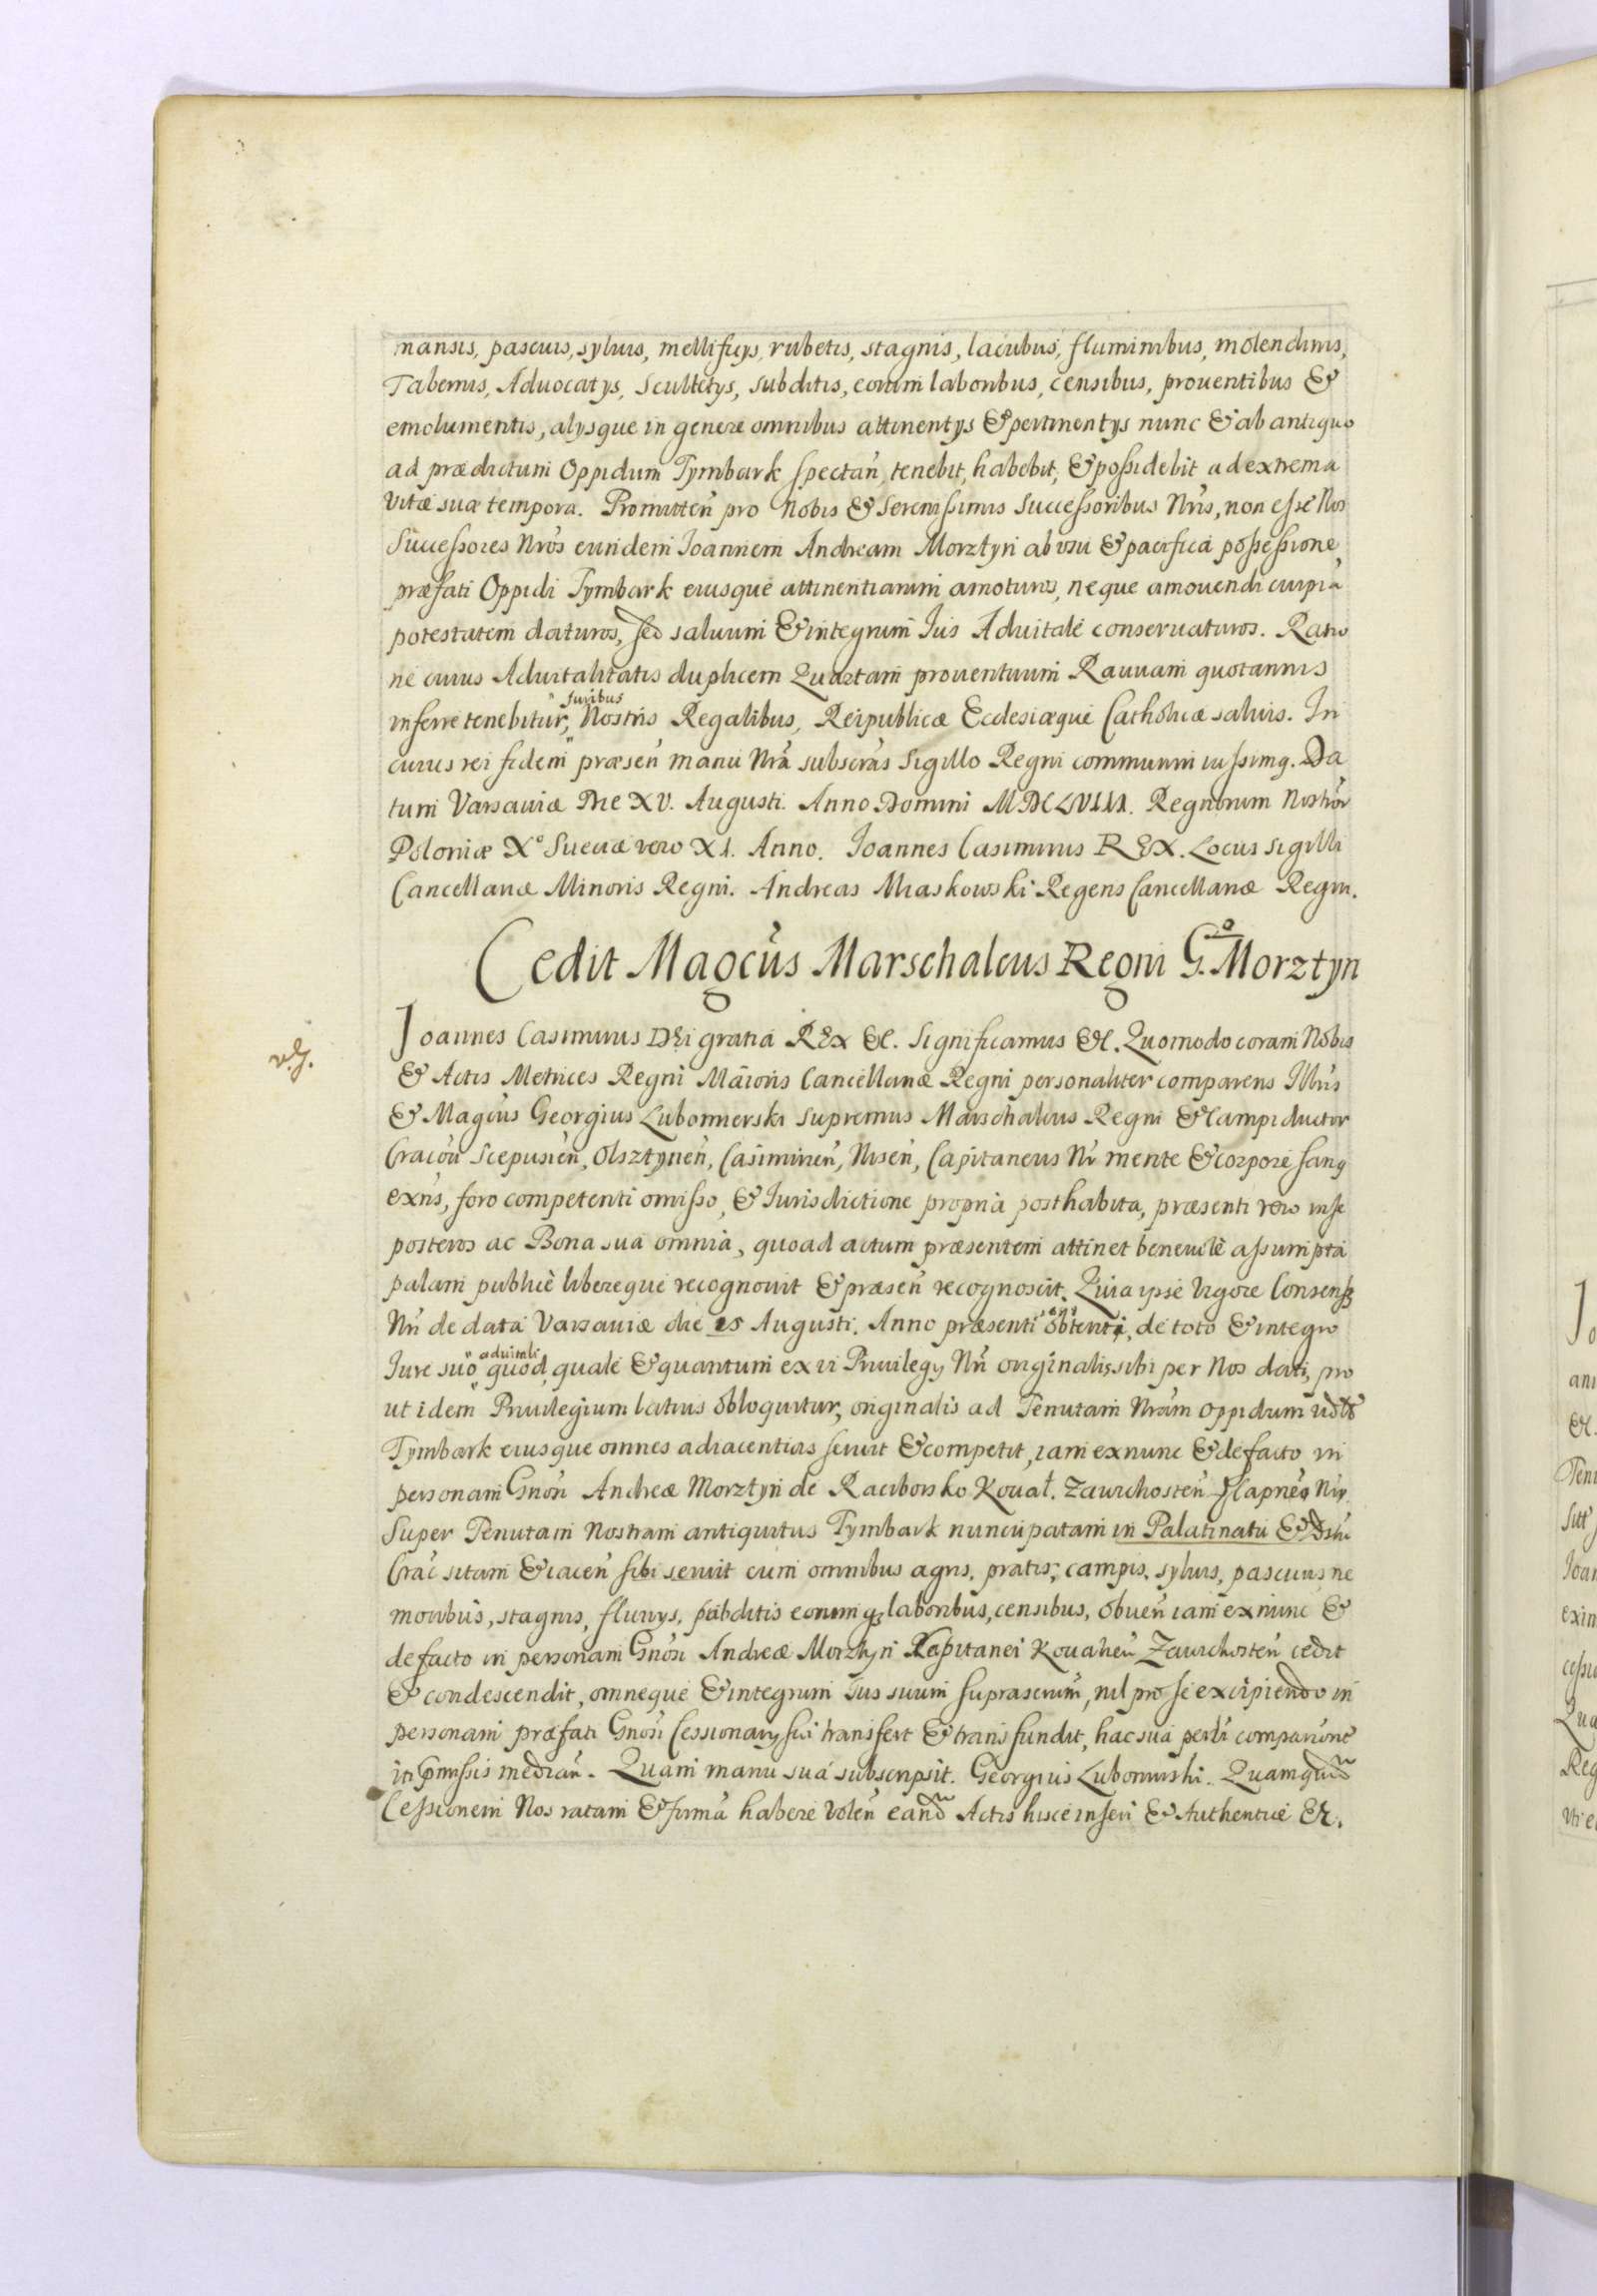 mansis, pascuis, sylvis, mellificijs, rubetis, stagnis, lacubus, fluminibus, molendinis,
Tabernis, Advocatys, Scultetys, subditis, eorum laboribus, censibus, proventibus &
emolumentis, alysque in genere omnibus attinentys & pertinentys nunc & ab antiquo
ad prædictum Oppidum Tymbark spectañ, tenebit, habebit, & possidebit ad extrema
vitæ suæ tempora. Promitteñ pro Nobis & Serenissimis Successoribus Nrĩs, non esse Nos
Successores Nrõs eundem Joannem Andream Morztyn ab usu & pacifica possessione
præfati Oppidi Tymbark eiusque attinentiarum amoturos, neque amovendi cuipiã
potestatem daturos, sed salvum & integrum Jus Advitale conservaturos. Ratio
ne cuius Advitalitatis duplicem Quartam proventuum Ravvam quotannis
inferre tenebitur, Juribus Nostris Regalibus, Reipublicæ Ecclesiæque Catholicæ salvis. In
cuius rei fidem præseñ manu Nrã subscrãs Sigillo Regni communiri iussimq. Da
tum Varsaviæ Die XV. Augusti. Anno Domini MDCLVIII. Regnorum Nostrõr
Poloniæ X° Sueciæ vero XI. Anno. Joannes Casimirus REX. Locus sigilli
Cancellariæ Minoris Regni. Andreas Miaskowski Regens Cancellariæ Regni.
Cedit Magcũs Marschalcus Regni G.° Morztyn
v.g.
Joannes Casimirus DEi gratia REX &c. Significamus &c. Quomodo coram Nobis
& Actis Metrices Regni Maioris Cancellariæ Regni personaliter comparens Illrĩs
& Magcũs Georgius Lubomierski Supremus Marschalcus Regni & Campiductor
Cracoṽ Scepusieñ, Olsztyneñ, Casimirieñ, Niseñ, Capitaneus Nr mente & corpore sanq
exñs, foro competenti omisso, & Jurisdictione propria posthabita, præsenti vero in se
posteros ac Bona sua omnia, quoad actum præsentem attinet benevilè assumpta
palam publicè libereque recognovit & præseñ recognoscit. Quia ipse Vigore Consensq
Nrĩ de data Varsaviæ die 15 Augusti. Anno præsenti obtenti, de toto & integro
Jure suo advitali quod, quale & quantum ex vi Privilegy Nrĩ originalis sibi per Nos dati, pro
ut idem Privilegium latius obloquitur, originalis ad Tenutam Nrãm Oppidum
Tymbark eiusque omnes adiacentias servit & competit, iam ex nunc & de facto in
personam Gnõsi Andreæ Morztyn de Raciborsko Koual. Zawichosteñ Nrĩ.
Super Tenutam Nostram antiquitus Tymbark nuncupatam in Palatinatu &
Crac̃ sitam & iaceñ sibi servit cum omnibus agris, pratis, campis, sylvis, pascuis ne
moribus, stagnis, fluvys, subditis eorumq laboribus, censibus, obveñ iam ex nunc &
de facto in personam Gnõsi Andreæ Morztyn Capitanei Kovalieñ Zawichosteñ cedit
& condescendit, omneque & integrum Jus suum suprascrum̃, nil pro se excipiendo in
personam præfati Gnõsi Cessionary sui transfert & transfundit, hac sua perlĩ comparitione
in præmissis mediañ. Quam manu sua subscripsit. Georgius Lubomirski. Quamquid̃
Cessionem Nos ratam & firmã habere voleñ eand̃ Actis hisce inseri & Authenticè &c.